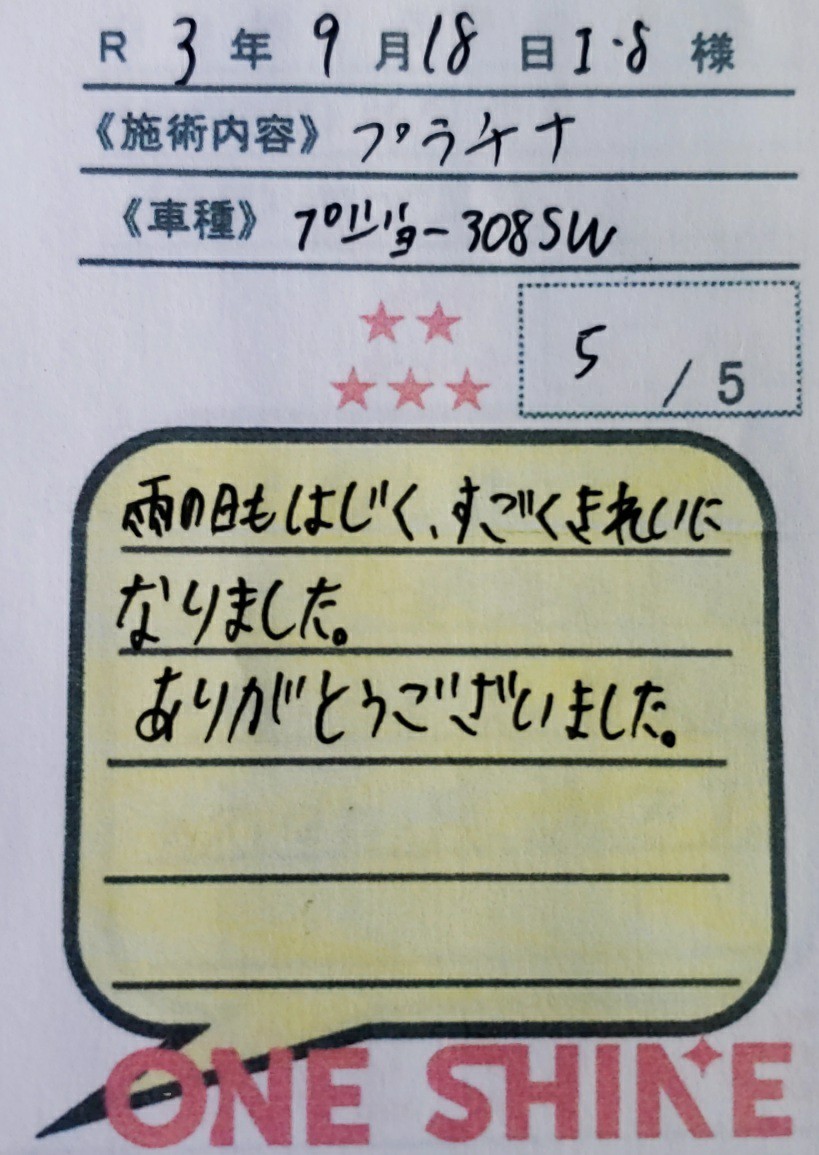 R 3 年 9 月 18 日 I・S 様
《施術内容》 プラチナ
《車種》 プジョー308SW
5 / 5
雨の日もはじく、すごくきれいに
なりました。
ありがとうございました。
ONE SHINE